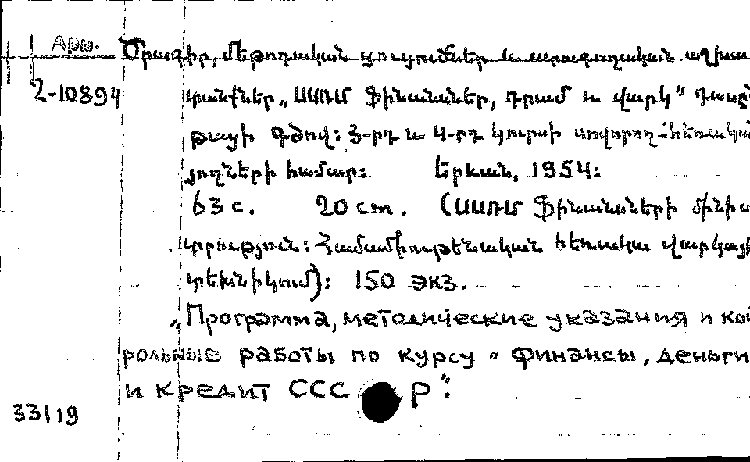 Арм. Ծրագիր, մեթոդական ցուցումներ և ստուգողական աշխա
2-10894 տանքներ „ՍՍՌՄ Ֆինանսներ, դրամ և վարկ” դասըն
թացի գծով: 3-րդ և 4-րդ կուրսի սովորող-հեռակա
յողների համար: Երևան, 1954:
63 с. 20 cm. (ՍՍՌՄ Ֆինանսների մինիս
տրություն: Համամիութենական հեռակա վարկայի
տեխնիկում): 150 экз.
„Программа, методические указания и кон
рольные работы по курсу „Финансы, деньги
и кредит СССР”:
33119